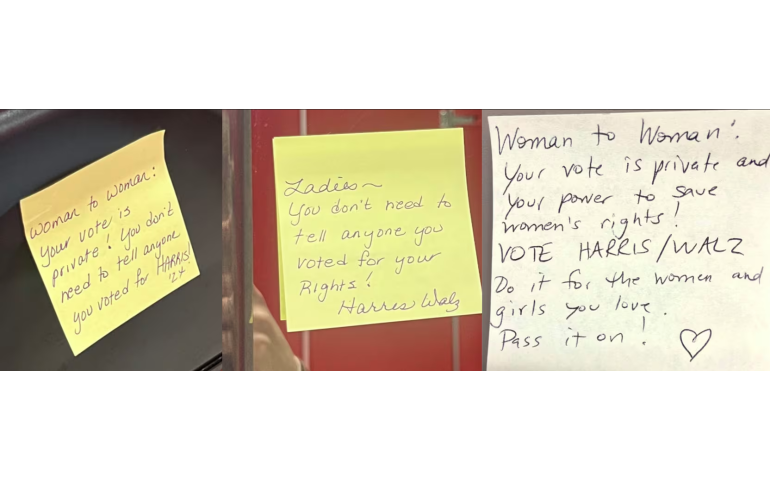 Woman to Woman:
Your vote is
private! You don't
need to tell anyone
you voted for HARRIS!
'24
Ladies~
You don't need to
tell anyone you
voted for your
Rights!
Harris Walz
Woman to Woman:
Your vote is private and
your power to save
women's rights!
VOTE HARRIS/WALZ
Do it for the women and
girls you love.
Pass it on! ♡